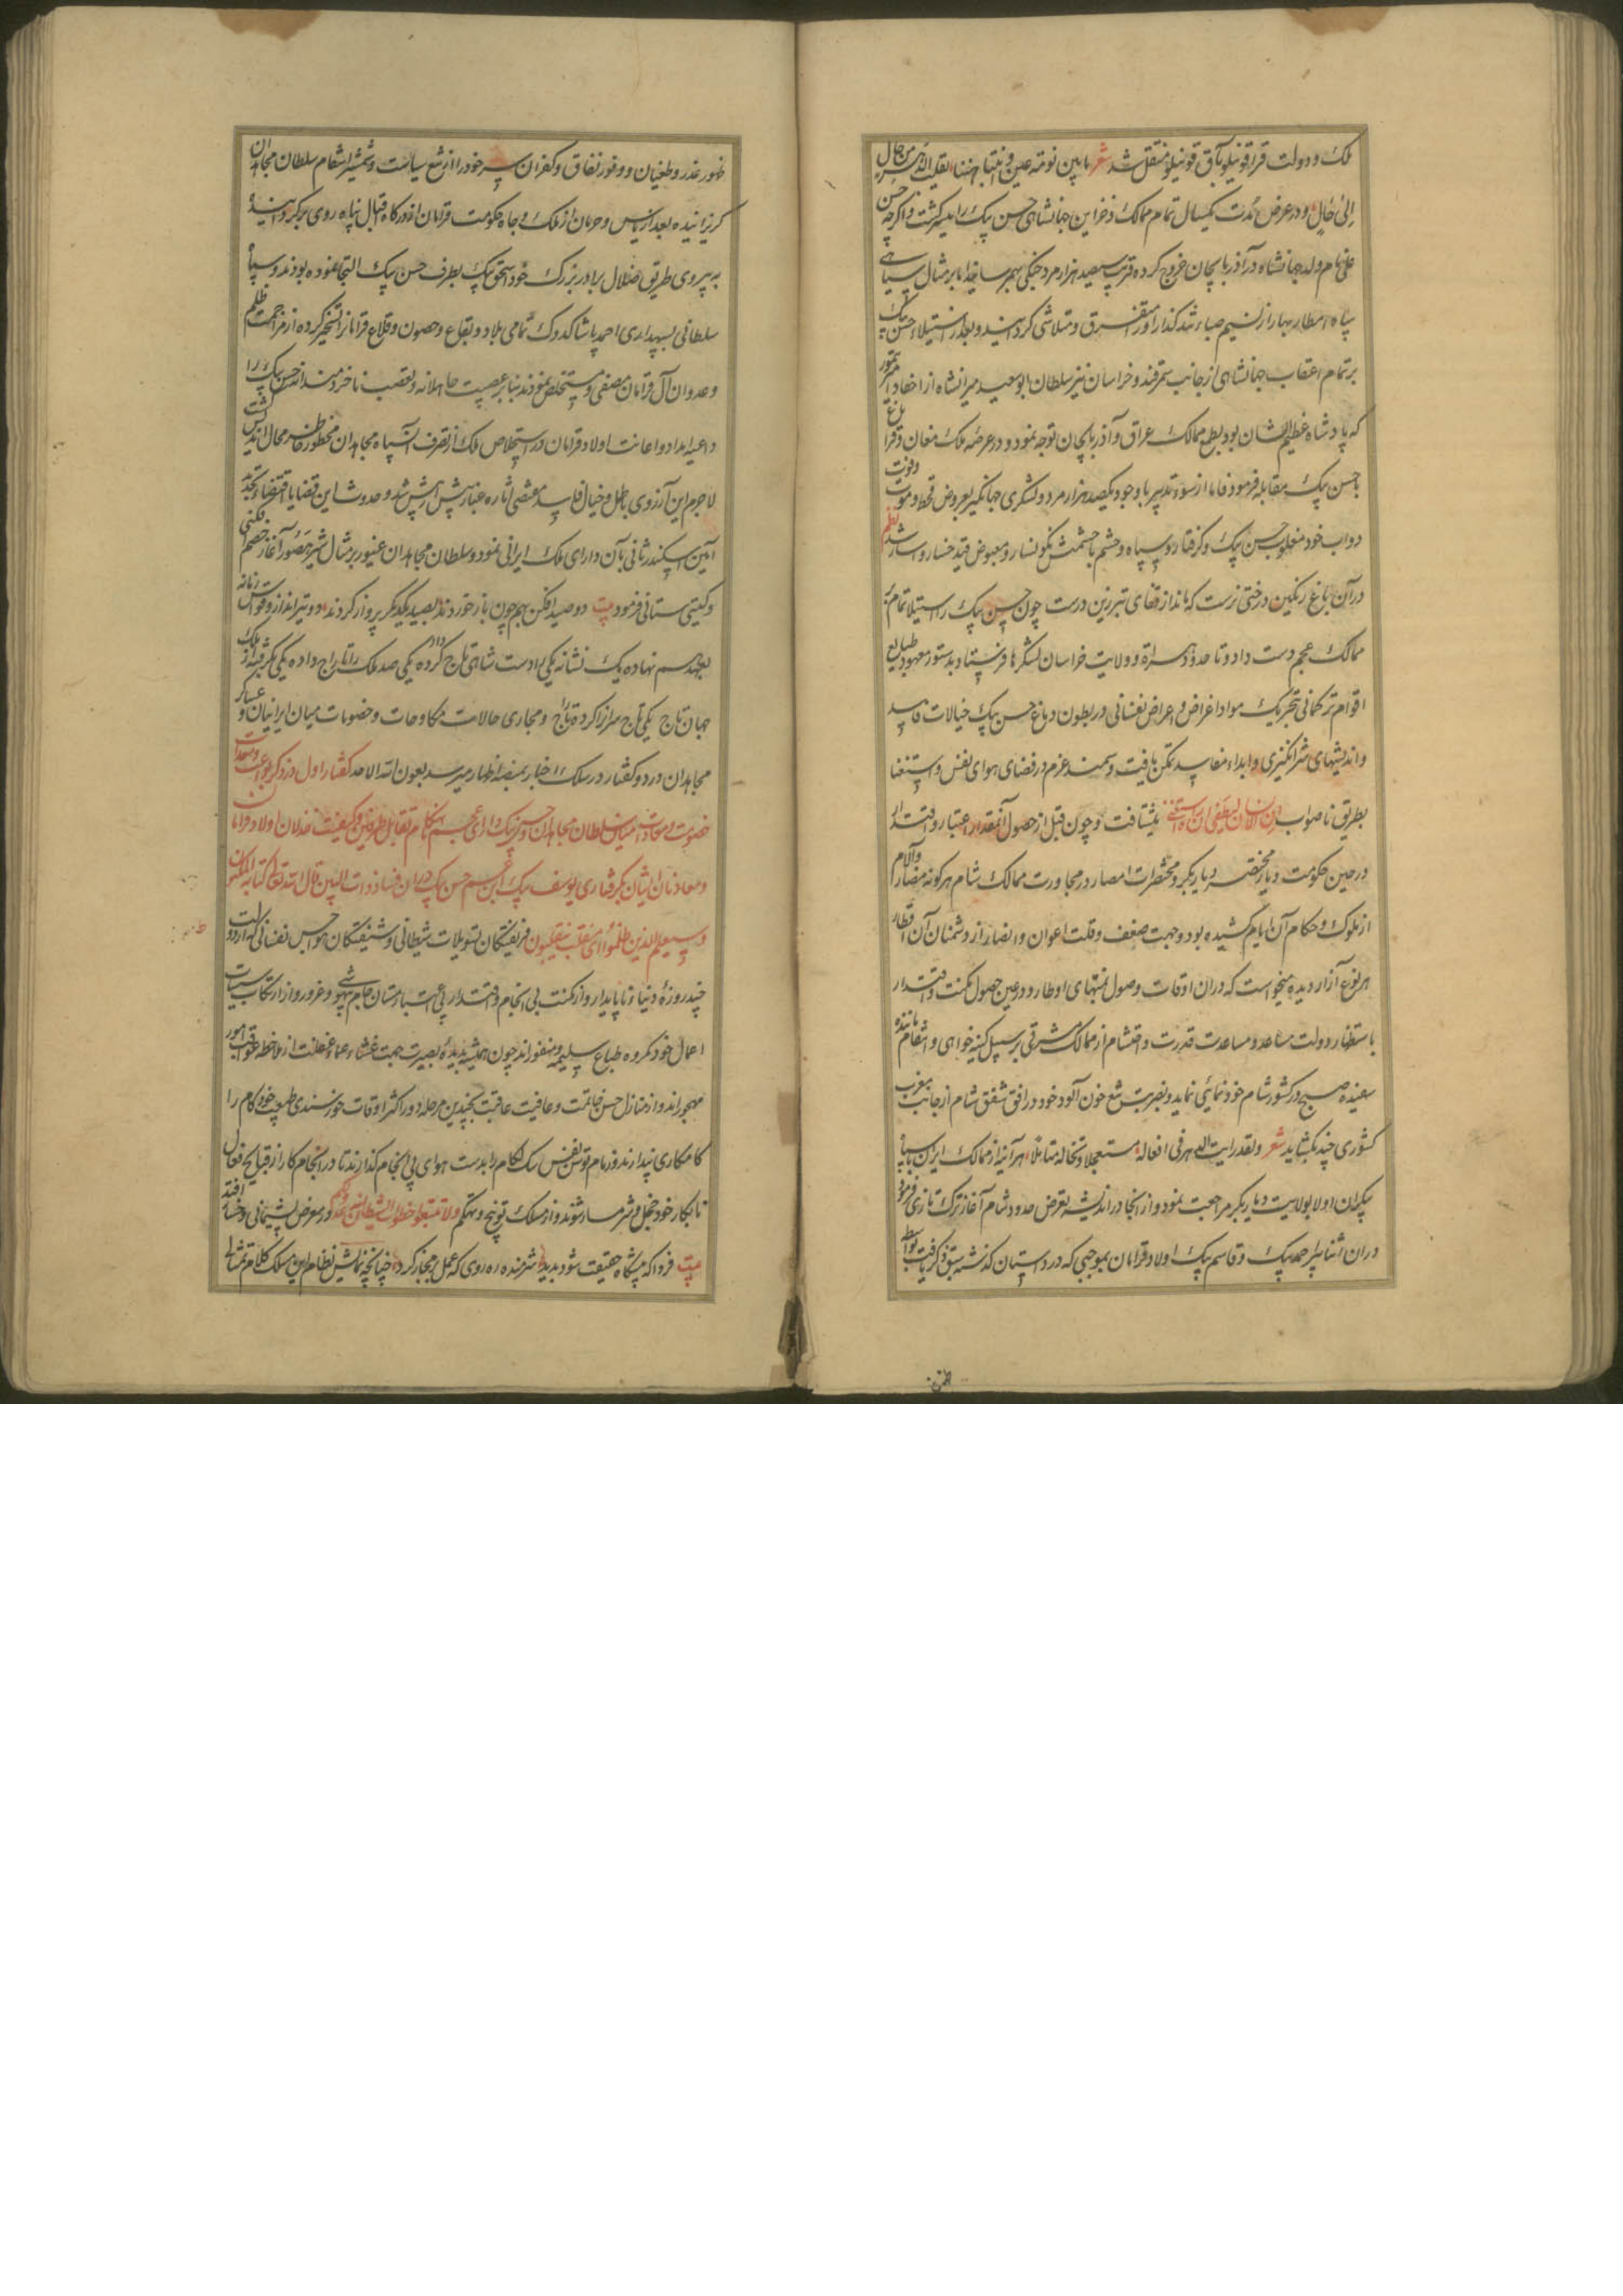 ملک و دولت قراقوینلو بآق قوینلو منتقل شد شعر ما بین نومة عین و انتباهتها یقلب الدهر من حال
الی حال و در عرض مدت یکسال تمام ممالک و خزاین جهانشاهی حسن بیک را میسر گشت و اگرچه حسن
علی نام ولد جهانشاه در آذربایجان خروج کرده قریب سیصد هزار مرد جنکی بهم رسانید اما بر مثال سیاهی
سپاه امطار بهار از نسیم صباء تند گذار او را متفرق و متلاشی گردانید و بعد از استیلاء حسن بیک
بر تمام اعقاب جهانشاهی از جانب سمرقند و خراسان نیز سلطان ابو سعید میرانشاه از احفاد امیر تیمور
که پادشاه عظیم الشان بود بطمع ممالک عراق و آذربایجان توجه نمود و در عرصه ملک مغان و قرا باغ
با حسن بیک مقابله فرمود فاما از سوء تدبیر با وجود یکصد هزار مرد و لشکری جهانکیر بعروض قحط و موت
دواب خود مغلوب حسن بیک و گرفتار و سپاه و حشم با حشمتش نکونسار و مقبوض قید خسار و اسار شد نظم
در آن باغ رنکین درختی نرست که ماند از قفای تبرزین درست چون حسن بیک را استیلا تمام بر
ممالک عجم دست داد و تا حدود هراة و ولایت خراسان لشکرها فرستاد بدستور معهود طبایع
اقوام ترکمانی بتحریک مواد اغراض و اعراض نفسانی در بطون دماغ حسن بیک خیالات فاسد
و اندیشهای شر انکیزی و ابداء مفاسد تمکن یافت و سمند عزم در فضای هوای نفس و استغنا
بطریق ناصواب ان الانسان لیطغی ان راه استغنی بشتافت و چون قبل از حصول آنمقدار اعتبار و اقتدار
در حین حکومت دیار مختصر دیاربکر و محتضرات امصار در مجاورت ممالک شام هر کونه مضار و آلام
از ملوک و حکام آن ایام کشیده بود و جهت ضعف و قلت اعوان و انصار از دشمنان آن اقطار
هر نوع آزار دیده میخواست که در آن اوقات وصول بمنتهای اوطار و در عین حصول مکنت و اقتدار
باستظهار دولت مساعد و مساعدت قدرت و احتشام از ممالک مشرقی بر سبیل کینه خواهی و انتقام ماننده
سفیده صبح در کشور شام خودنمایی نماید و بضربت تیغ خون آلود خود در افق شفق شام از جانب مغرب
کشوری چند بگشاید شعر ولقد رایت الدهر فی افعاله مستعجلا وتخاله متاملا هر آینه از ممالک ایران با سپاه
بیکران اولا بولایت دیاربکر مراجعت نمود و از آنجا در اندیشه تعرض حدود شام آغاز ترک تازی فرمود
در آن اثنا پیر احمد بیک و قاسم بیک اولاد قرامان بموجبی که در داستان گذشته سبق ذکر یافت بواسطه
ظهور غدر و طغیان و وفور نفاق و کفران سر خود را از تیغ سیاست و شمشیر انتقام سلطان مجاهدان
گریزانیده بعد از یاس و حرمان از ملک و جاه حکومت قرامان از درکاه اقبال پناه روی برگردانیده
به پیروی طریق ضلال برادر بزرگ خود اسحق بیک بطرف حسن بیک التجا نموده بودند و سپاه
سلطانی بسپهداری احمد پاشا کدوک تمامی بلاد و بقاع و حصون و قلاع قرامانرا تسخیر کرده از مزاحمت ظلم
و عدوان آل قرامان مصفی و مستخلص نمودند بنابر عصبیت جاهلانه و تعصب ناخردمندانه حسن بیک را
داعیه امداد و اعانت اولاد قرامان در استخلاص ملک از تصرف سپاه مجاهدان محظور خاطر محال اندیش گشت
لاجرم این آرزوی باطل و خیال فاسد مقتضی اثاره غبار پیش از پیش شد و حدوث این قضایا اقتضاء تجدید
آیین اسکندر ثانی بآن دارای ملک ایرانی نمود و سلطان مجاهدان غیور بر مثال شیر جسور آغاز خصم فکنی
و کیتی ستانی فرمود بیت دو صید افکن بهم چون باز خوردند بصید یکدکر پرواز کردند دو تیرانداز و قواس زمانه
بعهد هم نهاده یک نشانه یکی را دست شاهی تاج داده یکی صد ملک را تاراج کرده یکی بگرفته از ملک
جهان تاج یکی تاج سران را کرده تاراج و مجاری حالات مکاوحات و خصومات میان ایرانیان و عساکر
مجاهدان در دو گفتار در سلک اخبار بمنصه اظهار میرسد بعون الله الاحد گفتار اول در ذکر بواعث و مهیجات
خصومت و معادات میان سلطان مجاهدان و حسن بیک دارای عجم هنکام تقابل طرفین و کیفیت خذلان اولاد قرامان
و معاونان ایشان بگرفتاری یوسف بیک ابن عم حسن بیک در آن فساد ذات البین قال الله تعالی کتابه المکنون
وسیعلم الذین ظلموا ای منقلب ینقلبون فریفتکان تسویلات شیطانی و شیفتکان هواجس نفسانی که از دولت
چند روزه دنیا ناپایدار و از مکنت بی انجام و اقتدار بی اعتبار مستان جام سهو و غرور و از ارتکاب سیئات
اعمال خود مکروه طباع سلیمه و منفورند چون همیشه دیده بصیرت جهت غشاء عماء غفلت از ملاحظه عواقب امور
مهجورند و از منازل حسن خاتمت و عافیت عاقبت بچندین مرحله دور اکثر اوقات خورسندی طبع خودکام را
کامکاری پندارند و زمام توسن نفس سبک لکام را بدست هوای بی انجام گذارند تا در انجام کار از قبایح افعال
نابکار خود خجل و شرمسار شوند و از مسلک توبیخ و تهکم ولا تتبعوا خطوات الشیطان انه لکم در معرض پشیمانی و خسار افتند
بیت فردا که پیشکاه حقیقت شود پدید شرمنده ره روی که عمل بر مجاز کرد چنانچه نمایش نظام این سلک کلام تمثال